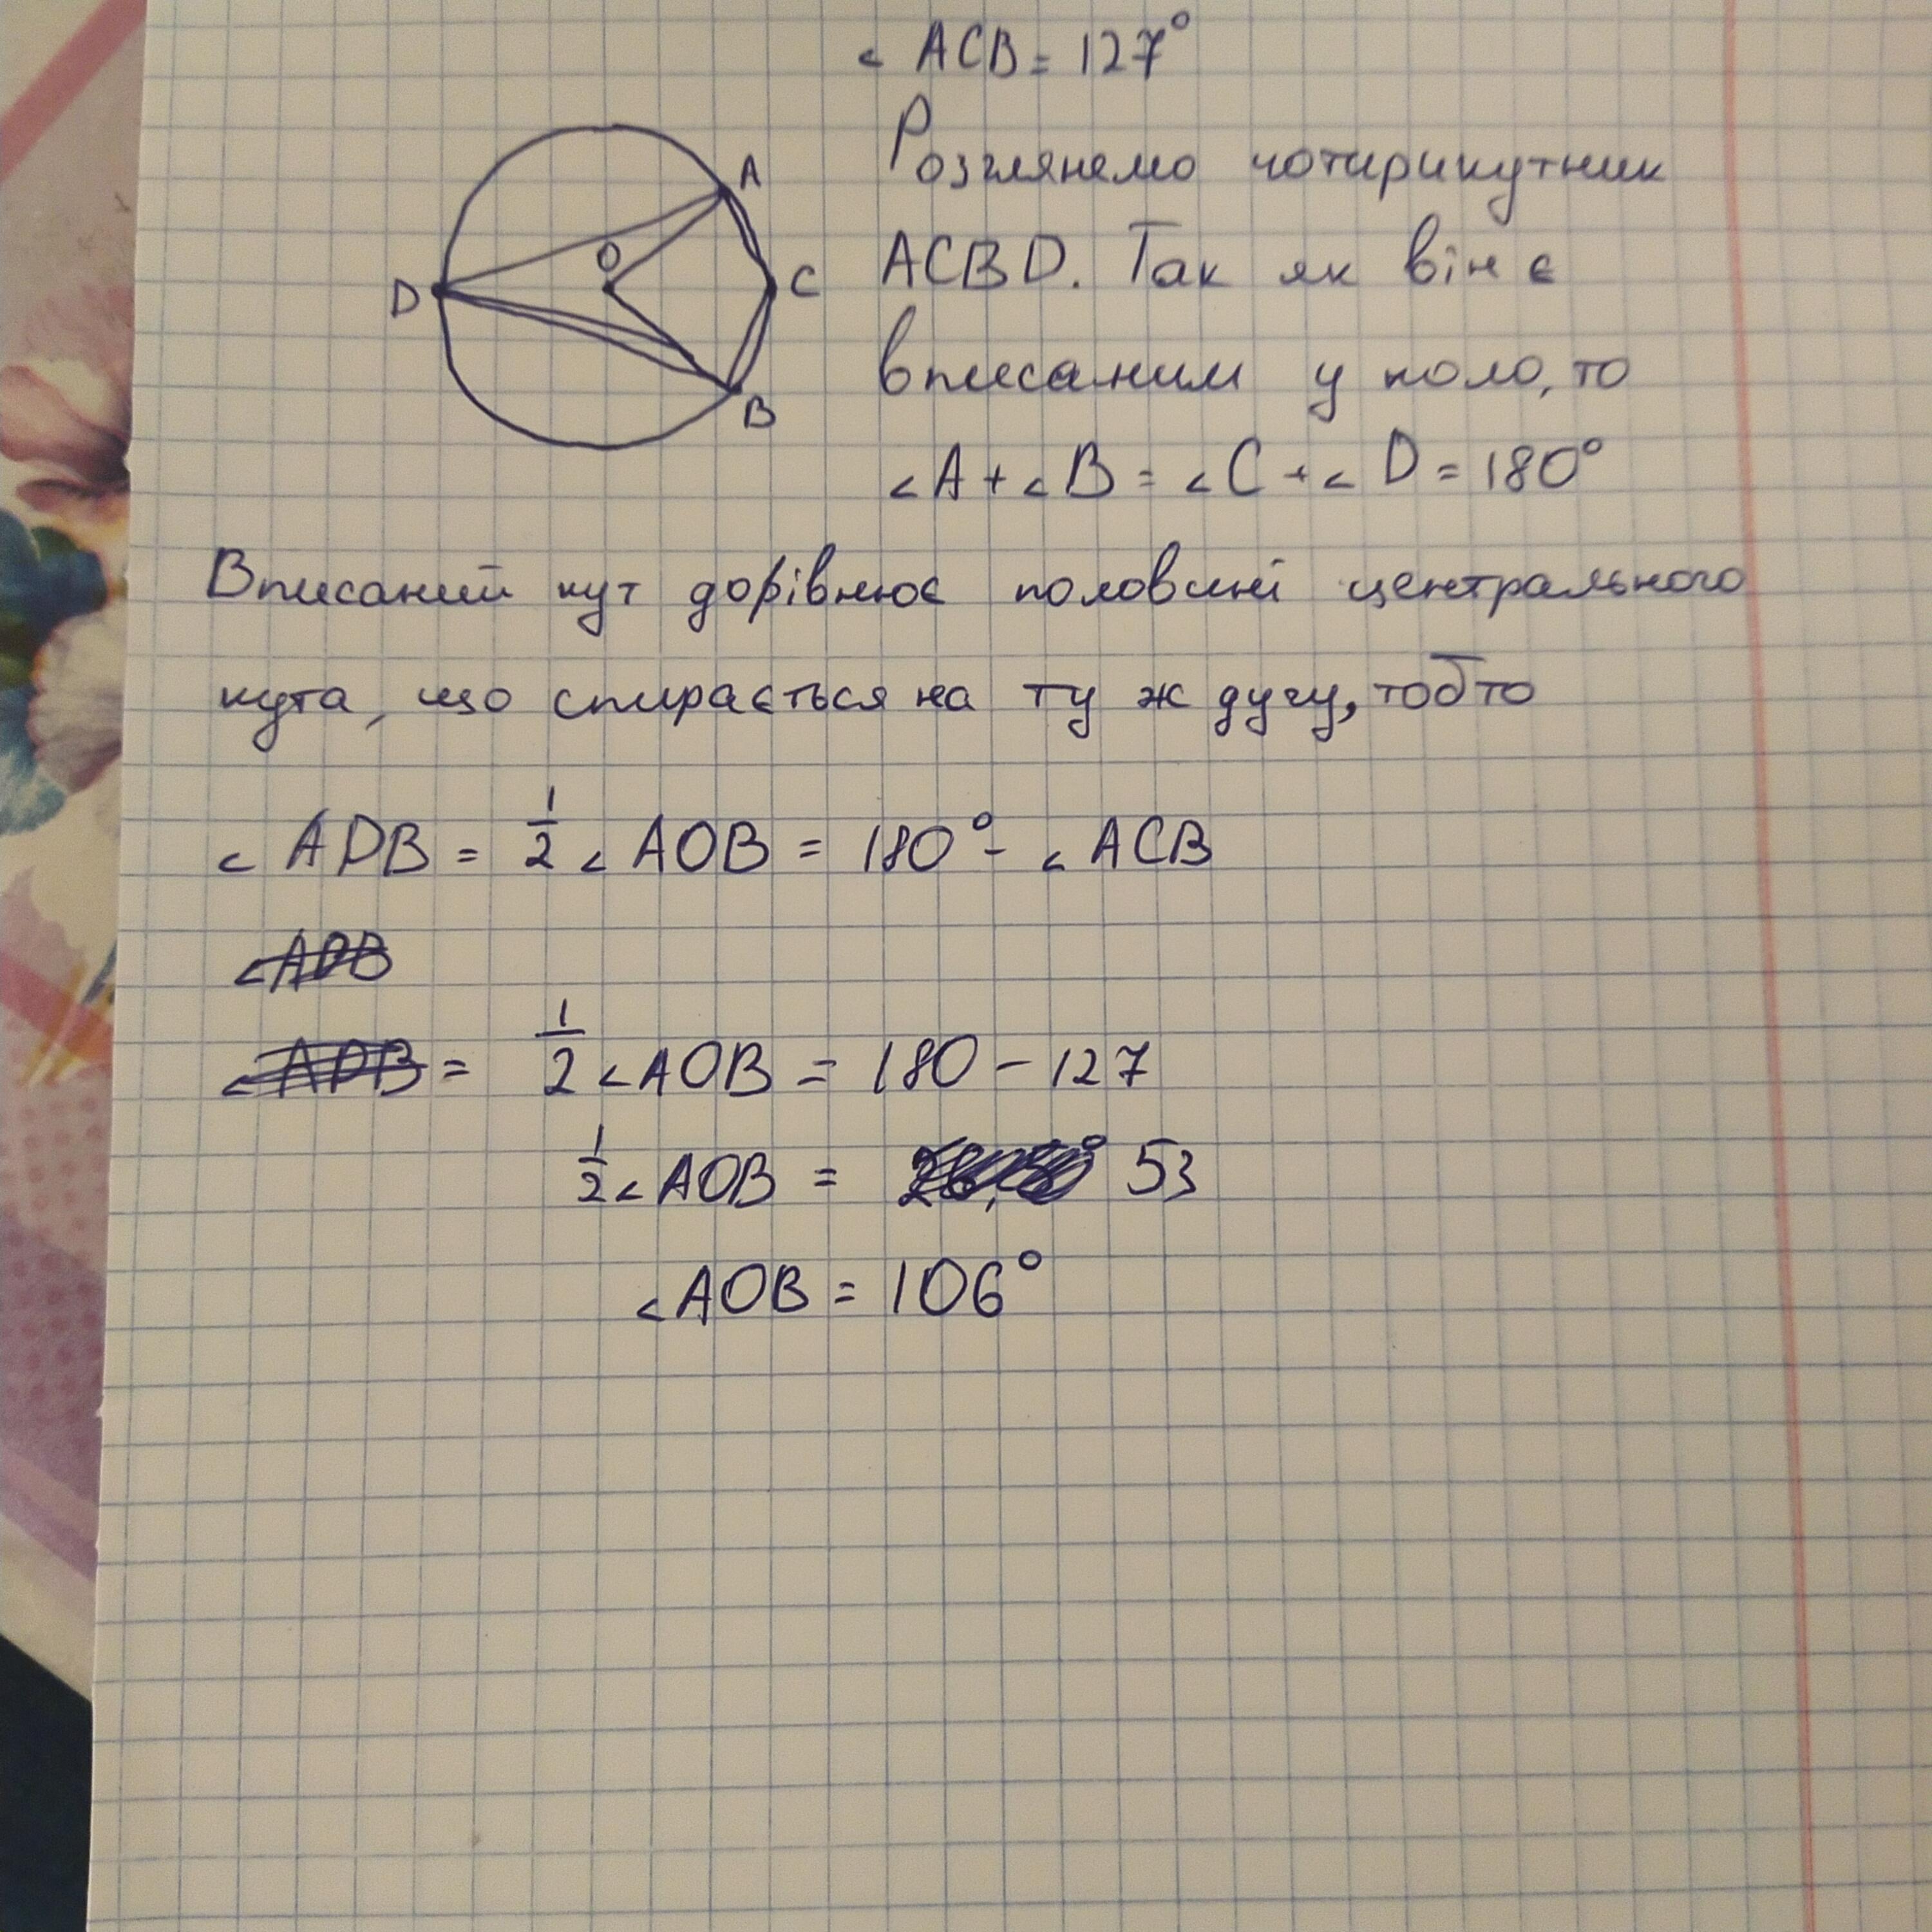 ∠ACB = 127°
Розглянемо чотирикутник
ACBD. Так як він є
вписаним у коло, то
∠A + ∠B = ∠C + ∠D = 180°
A
O
D
C
B
Вписаний кут дорівнює половині центрального
кута, що спирається на ту ж дугу, тобто
∠ADB = 1/2 ∠AOB = 180° - ∠ACB
∠ADB
∠ADB = 1/2 ∠AOB = 180 - 127
1/2 ∠AOB = 53
∠AOB = 106°